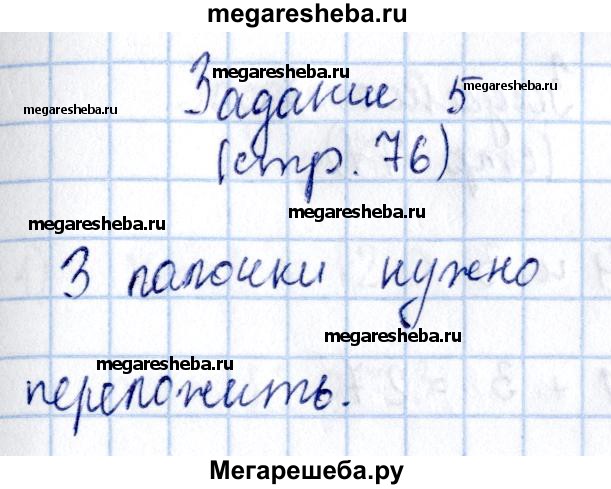 megaresheba.ru
megaresheba.ru
Задание 5
megaresheba.ru
megaresheba.ru
(стр. 76)
megaresheba.ru
megaresheba.ru
3 палочки нужно
megaresheba.ru
megaresheba.ru
переложить.
Мегарешеба.ру